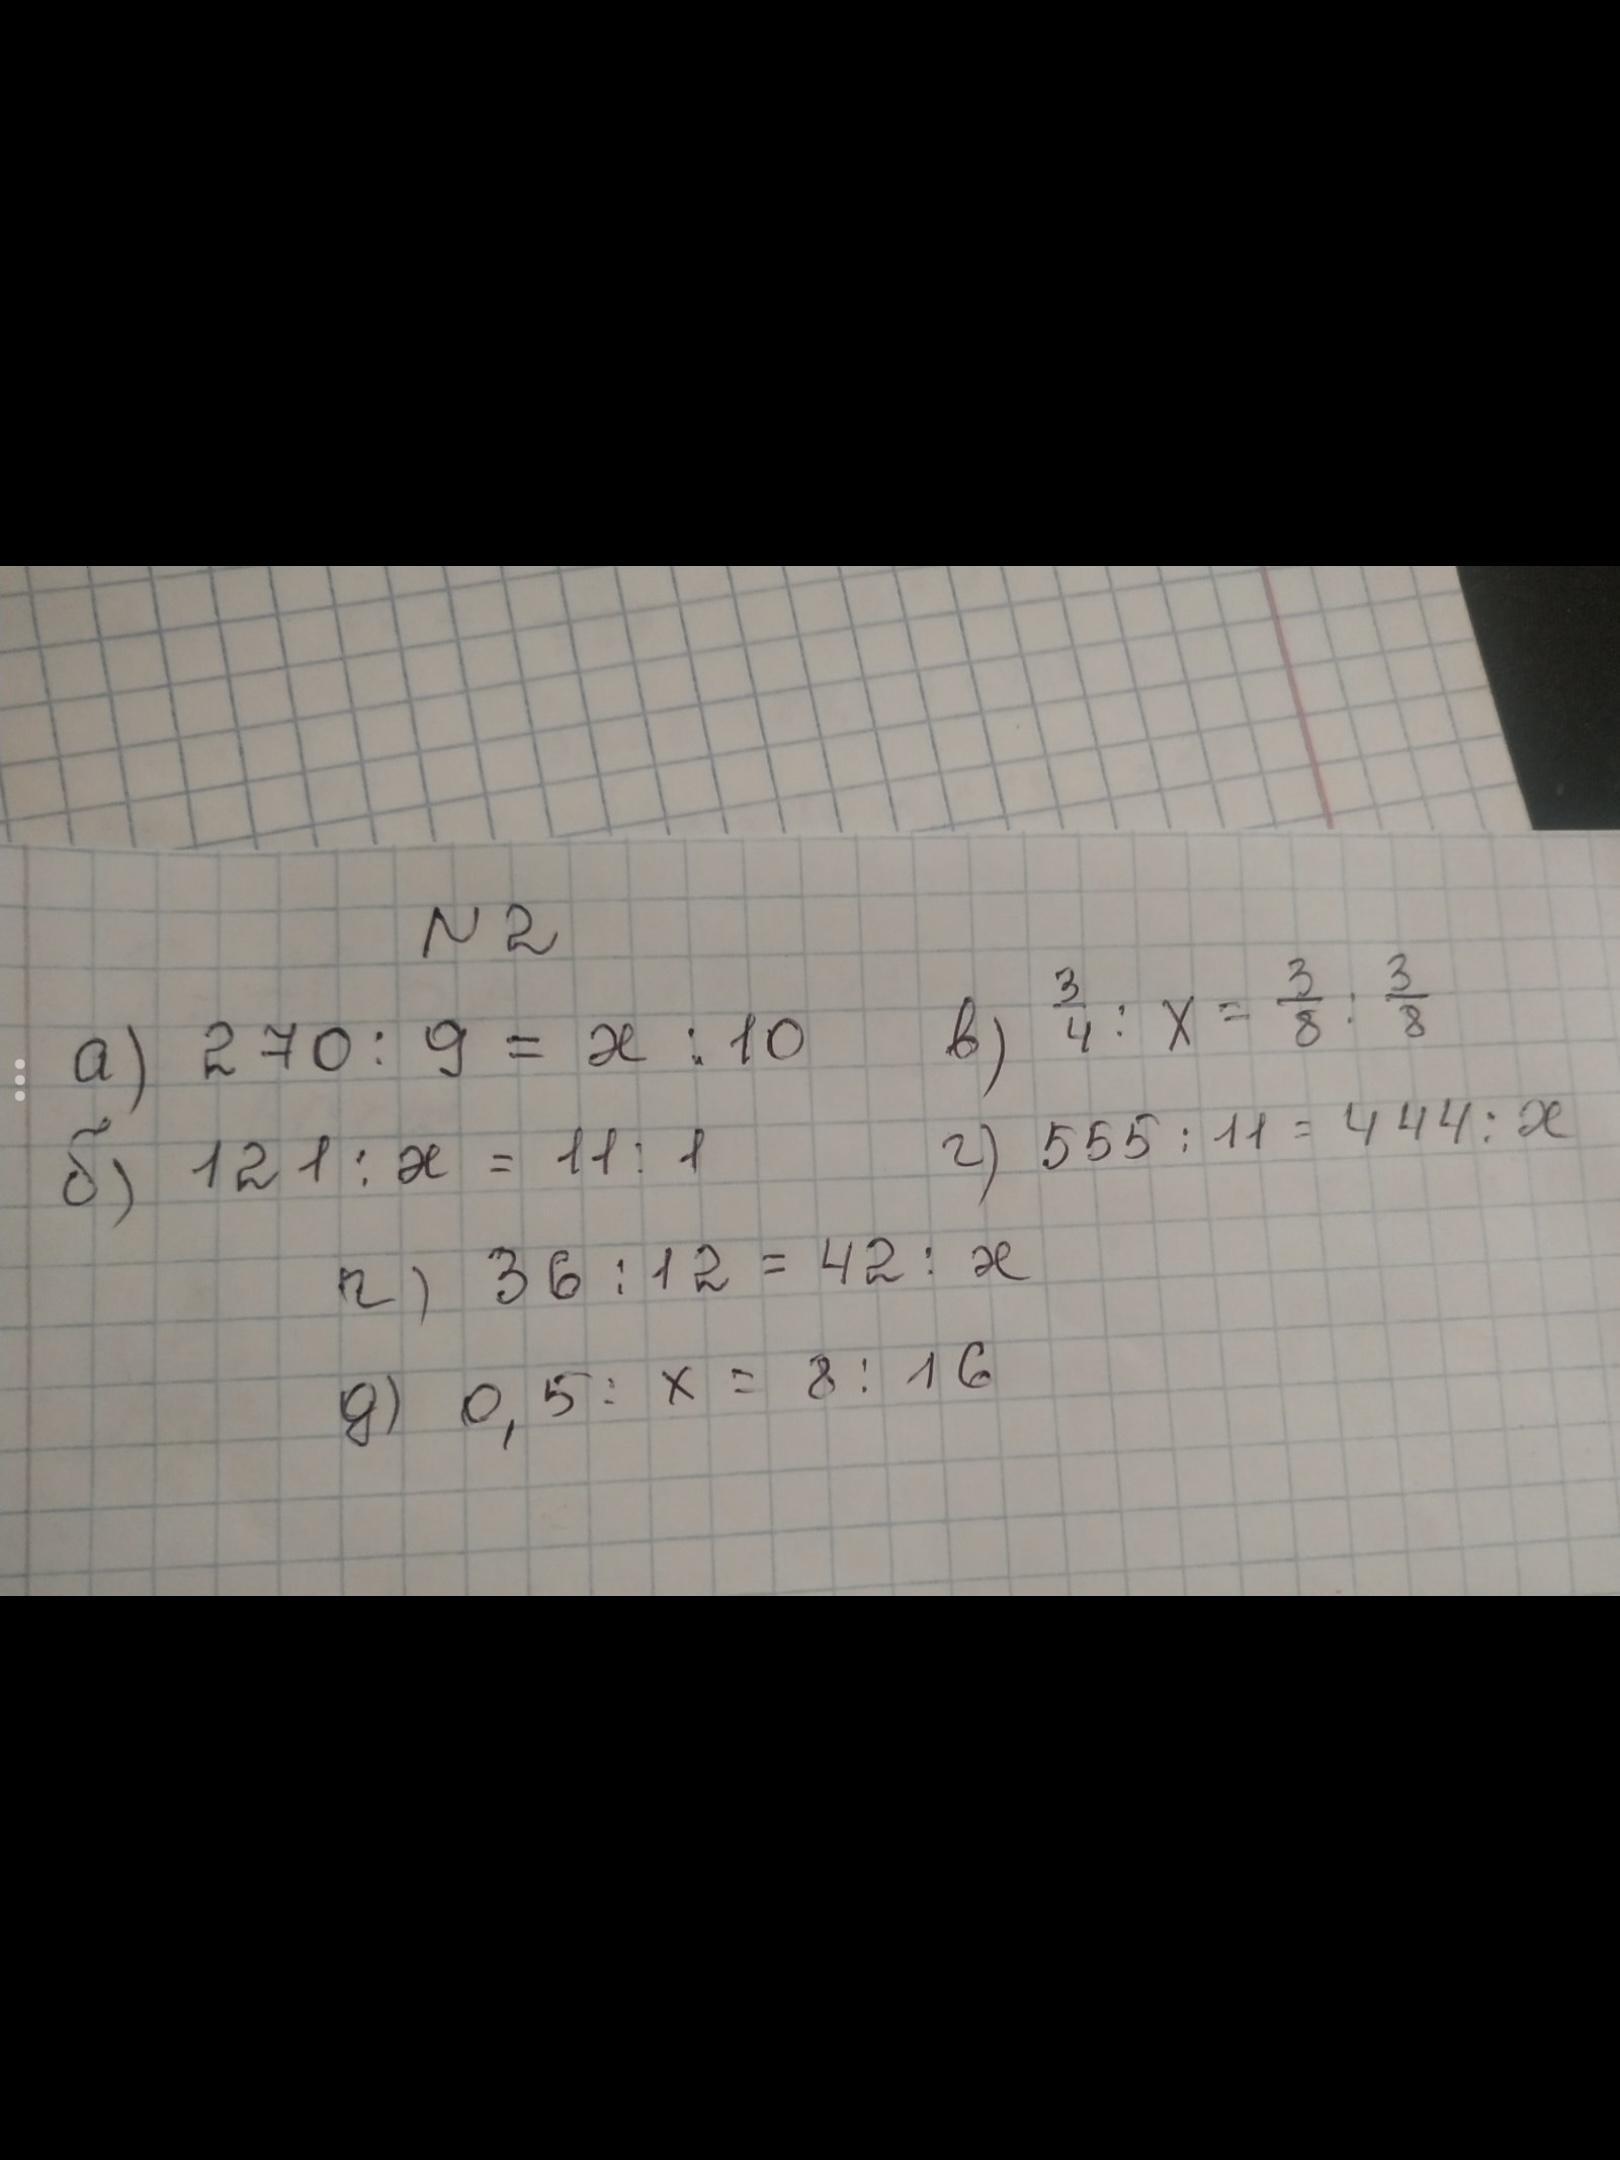 N 2
а) 270 : 9 = x : 10
в) 3/4 : x = 3/8 : 3/8
б) 121 : x = 11 : 1
г) 555 : 11 = 444 : x
г) 36 : 12 = 42 : x
д) 0,5 : x = 8 : 16